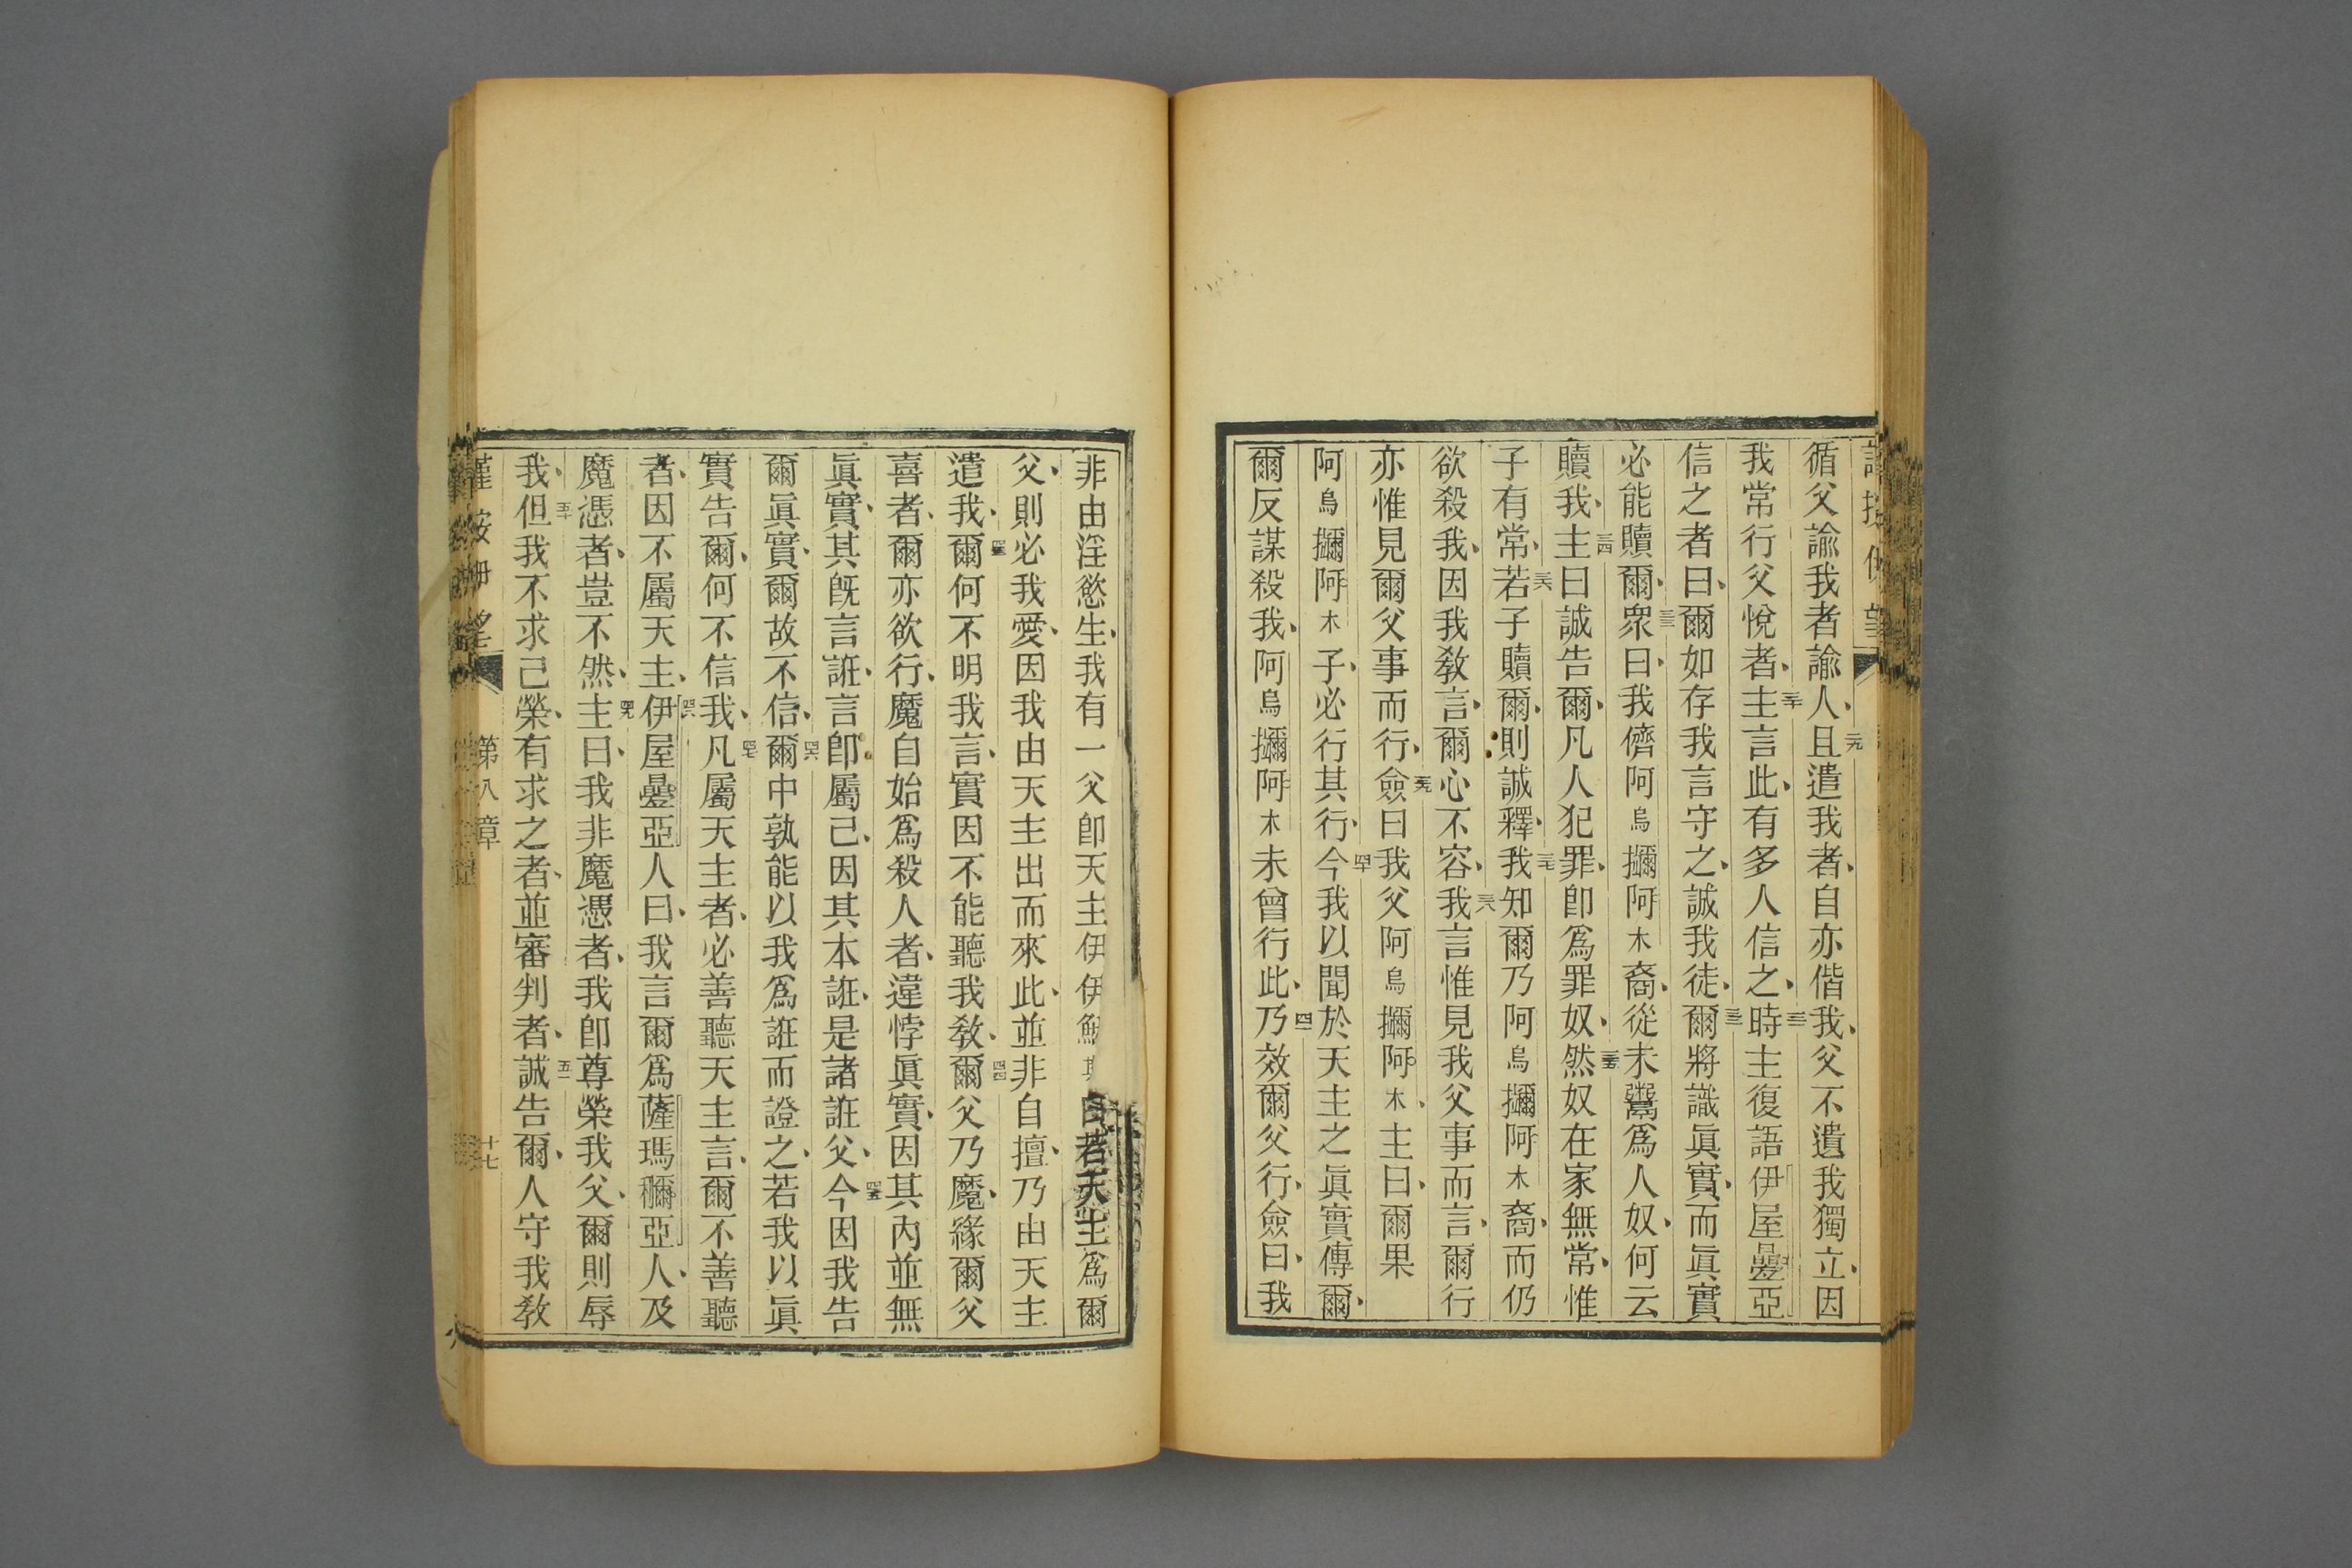 循父諭我者諭人、二九且遣我者、自亦偕我、父不遺我獨立、因
我常行父悅者、三十主言此、有多人信之、三一時主復語伊屋疊亞
信之者曰、爾如存我言守之、誠我徒、三二爾將識眞實、而眞實
必能贖爾、三三衆曰、我儕阿烏攡阿木裔、從未鬻爲人奴、何云
贖我、三四主曰誠告爾、凡人犯罪、卽爲罪奴、三五然奴在家無常、惟
子有常、三六若子贖爾、則誠釋、三七我知爾乃阿烏攡阿木裔、而仍
欲殺我、因我敎言、爾心不容、三八我言惟見我父事而言、爾行
亦惟見爾父事而行、三九僉曰我父阿烏攡阿木、主曰、爾果
阿烏攡阿木子、必行其行、四十今我以聞於天主之眞實傳爾、
爾反謀殺我、阿烏攡阿木未曾行此、四一乃效爾父行、僉曰、我
非由淫慾生、我有一父卽天主伊伊 曰若天主爲爾
父、則必我愛、因我由天主出而來此、並非自擅、乃由天主
遣我、四三爾何不明我言、實因不能聽我敎、四四爾父乃魔、緣爾父
喜者、爾亦欲行、魔自始爲殺人者、違悖眞實、因其內並無
眞實、其旣言誑、言卽屬己、因其本誑、是諸誑父、四五今因我告
爾眞實、爾故不信、四六爾中孰能以我爲誑而證之、若我以眞
實告爾、何不信我、四七凡屬天主者、必善聽天主言、爾不善聽
者、因不屬天主、四八伊屋疊亞人曰、我言爾爲薩瑪穪亞人、及
魔憑者、豈不然、四九主曰、我非魔憑者、我卽尊榮我父、爾則辱
我、五十但我不求己榮、有求之者、並審判者、五一誠告爾、人守我敎
第八章 十七